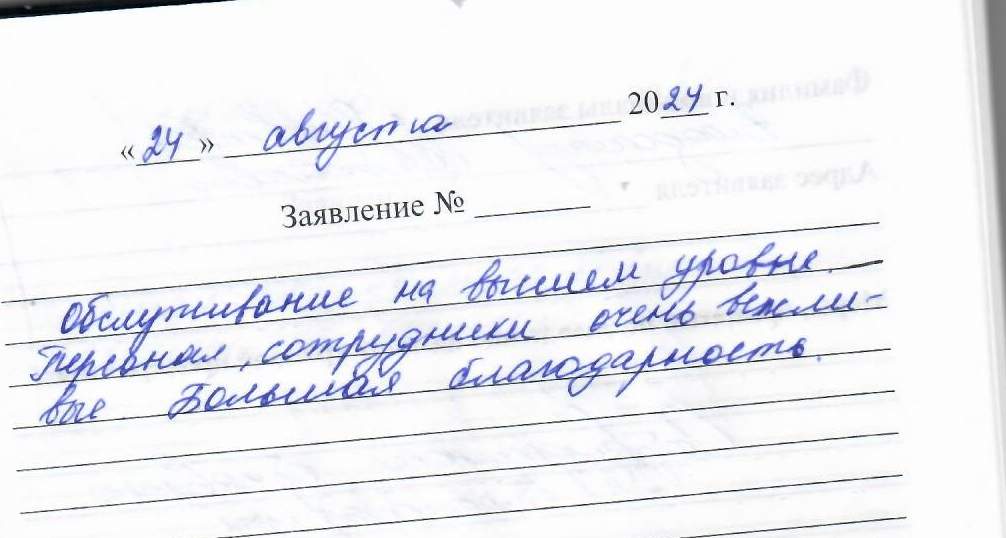 «24» августа 2024 г.
Заявление №
Обслуживание на высшем уровне.
Персонал, сотрудники очень вежли-
вые Большая благодарность.